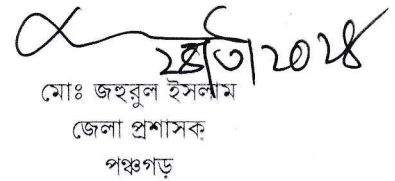 ২৪/৩/২০২৪
মোঃ জহুরুল ইসলাম
জেলা প্রশাসক
পঞ্চগড়